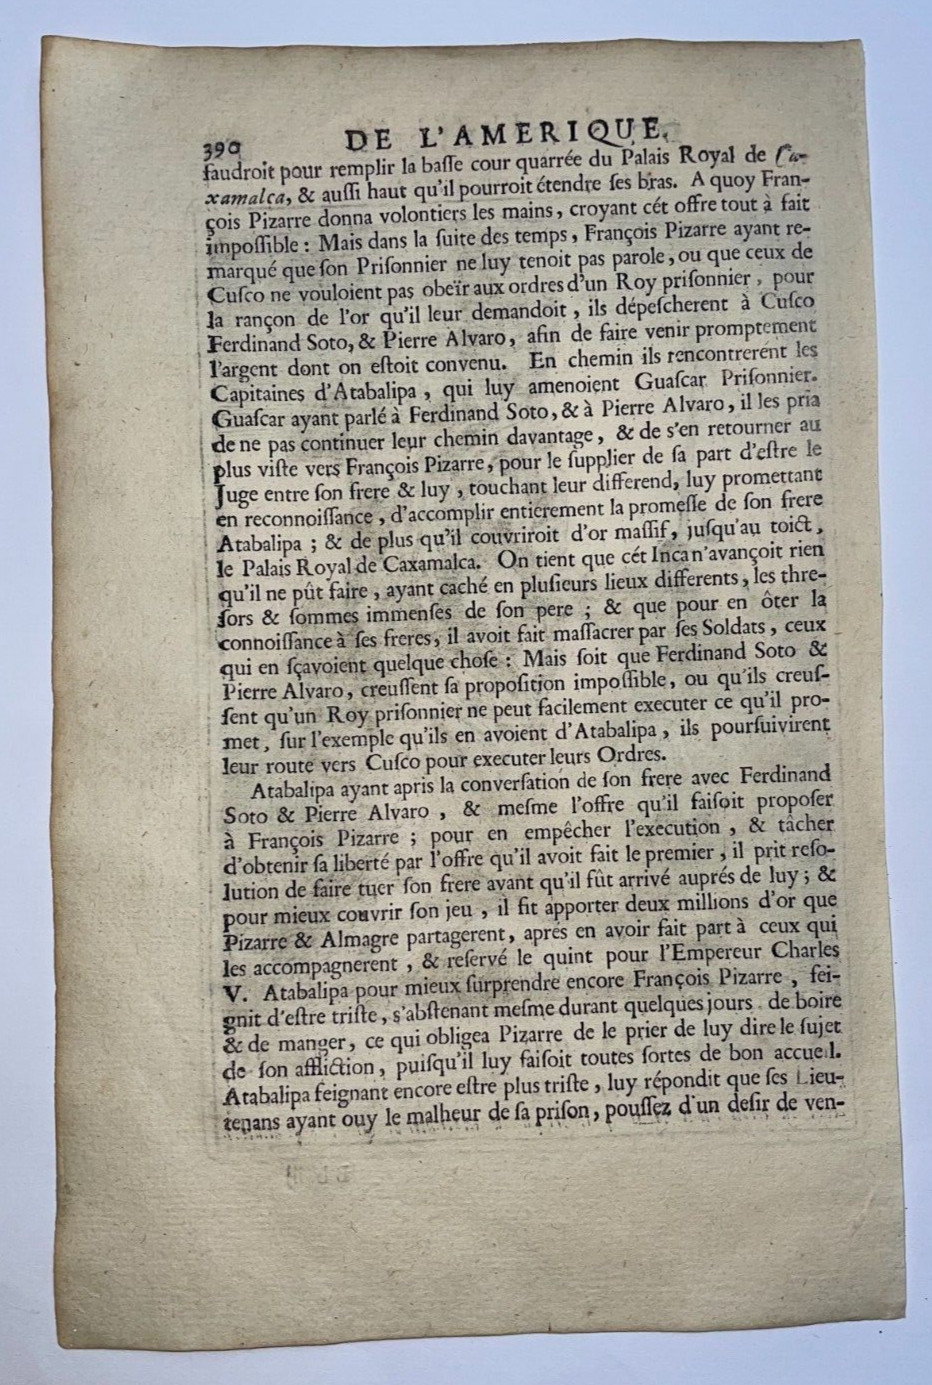 390 DE L'AMERIQUE.
faudroit pour remplir la baſſe cour quarrée du Palais Royal de Ca-
xamalca, & auſſi haut qu'il pourroit étendre ſes bras. A quoy Fran-
çois Pizarre donna volontiers les mains, croyant cét offre tout à fait
impoſſible : Mais dans la ſuite des temps, François Pizarre ayant re-
marqué que ſon Priſonnier ne luy tenoit pas parole, ou que ceux de
Cuſco ne vouloient pas obeïr aux ordres d'un Roy priſonnier, pour
la rançon de l'or qu'il leur demandoit, ils dépeſcherent à Cuſco
Ferdinand Soto, & Pierre Alvaro, afin de faire venir promptement
l'argent dont on eſtoit convenu. En chemin ils rencontrerent les
Capitaines d'Atabalipa, qui luy amenoient Guaſcar Priſonnier.
Guaſcar ayant parlé à Ferdinand Soto, & à Pierre Alvaro, il les pria
de ne pas continuer leur chemin davantage, & de s'en retourner au
plus viſte vers François Pizarre, pour le ſupplier de ſa part d'eſtre le
Juge entre ſon frere & luy, touchant leur differend, luy promettant
en reconnoiſſance, d'accomplir entierement la promeſſe de ſon frere
Atabalipa ; & de plus qu'il couvriroit d'or maſſif, juſqu'au toict,
le Palais Royal de Caxamalca. On tient que cét Inca n'avançoit rien
qu'il ne pût faire, ayant caché en pluſieurs lieux differents, les thre-
ſors & ſommes immenſes de ſon pere ; & que pour en ôter la
connoiſſance à ſes freres, il avoit fait maſſacrer par ſes Soldats, ceux
qui en ſçavoient quelque choſe : Mais ſoit que Ferdinand Soto &
Pierre Alvaro, creuſſent ſa propoſition impoſſible, ou qu'ils creuſ-
ſent qu'un Roy priſonnier ne peut facilement executer ce qu'il pro-
met, ſur l'exemple qu'ils en avoient d'Atabalipa, ils pourſuivirent
leur route vers Cuſco pour executer leurs Ordres.
Atabalipa ayant apris la converſation de ſon frere avec Ferdinand
Soto & Pierre Alvaro, & meſme l'offre qu'il faiſoit propoſer
à François Pizarre ; pour en empêcher l'execution, & tâcher
d'obtenir ſa liberté par l'offre qu'il avoit fait le premier, il prit reſo-
lution de faire tuer ſon frere avant qu'il fût arrivé auprés de luy ; &
pour mieux couvrir ſon jeu, il fit apporter deux millions d'or que
Pizarre & Almagre partagerent, aprés en avoir fait part à ceux qui
les accompagnerent, & reſervé le quint pour l'Empereur Charles
V. Atabalipa pour mieux ſurprendre encore François Pizarre, fei-
gnit d'eſtre triſte, s'abſtenant meſme durant quelques jours de boire
& de manger, ce qui obligea Pizarre de le prier de luy dire le ſujet
de ſon affliction, puiſqu'il luy faiſoit toutes ſortes de bon accueil.
Atabalipa feignant encore eſtre plus triſte, luy répondit que ſes Lieu-
tenans ayant ouy le malheur de ſa priſon, pouſſez d'un deſir de ven-